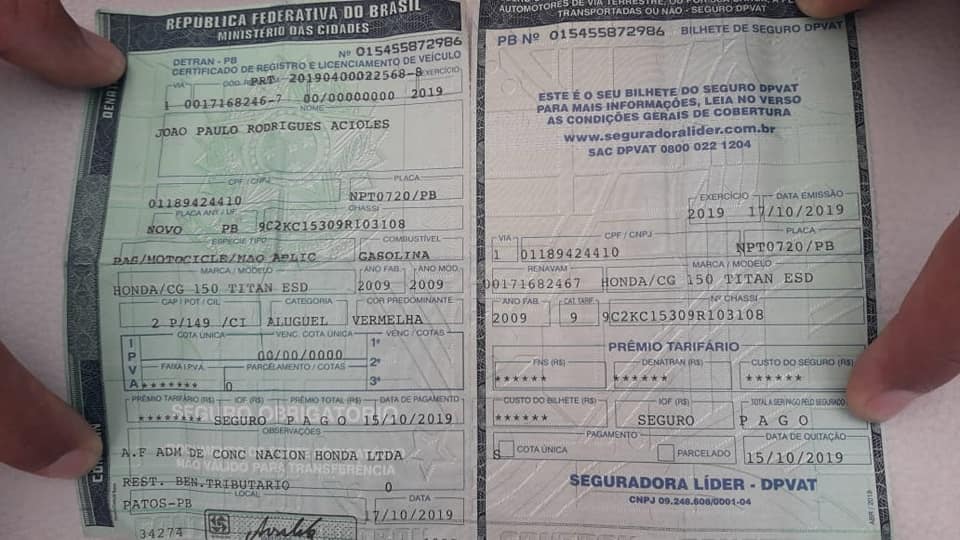 REPÚBLICA FEDERATIVA DO BRASIL
MINISTÉRIO DAS CIDADES
DETRAN - PB Nº 015455872986
CERTIFICADO DE REGISTRO E LICENCIAMENTO DE VEÍCULO
VIA PRT 20190400022568-8 EXERCÍCIO
1 0017168246-7 00/00000000 2019
NOME
JOAO PAULO RODRIGUES ACIOLES
CPF / CNPJ PLACA
01189424410 NPT0720/PB
PLACA ANT / UF CHASSI
NOVO PB 9C2KC15309R103108
ESPÉCIE TIPO COMBUSTÍVEL
PAS/MOTOCICLE/NAO APLIC GASOLINA
MARCA / MODELO ANO FAB. ANO MOD.
HONDA/CG 150 TITAN ESD 2009 2009
CAP / POT / CIL CATEGORIA COR PREDOMINANTE
2 P/149 /CI ALUGUEL VERMELHA
COTA ÚNICA VENC. COTA ÚNICA VENC / COTAS
IPVA 00/00/0000 1ª
FAIXA I.P.V.A. PARCELAMENTO / COTAS 2ª
******* 0 3ª
PRÊMIO TARIFÁRIO (R$) IOF (R$) PRÊMIO TOTAL (R$) DATA DE PAGAMENTO
******** SEGURO P A G O 15/10/2019
SEGURO OBRIGATÓRIO
OBSERVAÇÕES
A.F ADM DE CONC NACION HONDA LTDA
NÃO VÁLIDO PARA TRANSFERÊNCIA
REST. BEN.TRIBUTARIO 0
LOCAL DATA
PATOS-PB 17/10/2019
34274
AUTOMOTORES DE VIA TERRESTRE, OU POR SUA CARGA, A
TRANSPORTADAS OU NÃO - SEGURO DPVAT
PB Nº 015455872986 BILHETE DE SEGURO DPVAT
ESTE É O SEU BILHETE DO SEGURO DPVAT
PARA MAIS INFORMAÇÕES, LEIA NO VERSO
AS CONDIÇÕES GERAIS DE COBERTURA
www.seguradoralider.com.br
SAC DPVAT 0800 022 1204
EXERCÍCIO DATA EMISSÃO
2019 17/10/2019
VIA CPF / CNPJ PLACA
1 01189424410 NPT0720/PB
RENAVAM MARCA / MODELO
00171682467 HONDA/CG 150 TITAN ESD
ANO FAB. CAT. TARIF. Nº CHASSI
2009 9 9C2KC15309R103108
PRÊMIO TARIFÁRIO
FNS (R$) DENATRAN (R$) CUSTO DO SEGURO (R$)
****** ****** ******
CUSTO DO BILHETE (R$) IOF (R$) TOTAL A SER PAGO PELO SEGURADO
****** SEGURO P A G O
PAGAMENTO DATA DE QUITAÇÃO
S COTA ÚNICA PARCELADO 15/10/2019
SEGURADORA LÍDER - DPVAT
CNPJ 09.248.608/0001-04
ABR / 2019